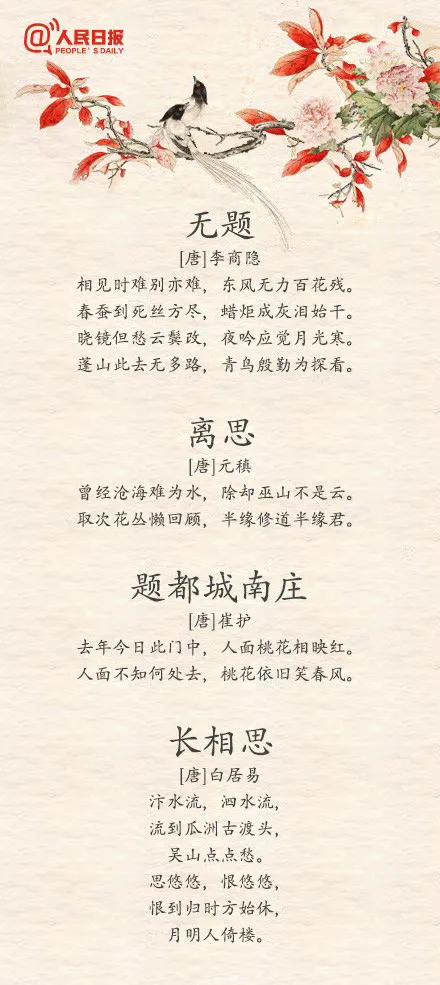 @人民日报
PEOPLE'S DAILY
无题
[唐]李商隐
相见时难别亦难，东风无力百花残。
春蚕到死丝方尽，蜡炬成灰泪始干。
晓镜但愁云鬓改，夜吟应觉月光寒。
蓬山此去无多路，青鸟殷勤为探看。
离思
[唐]元稹
曾经沧海难为水，除却巫山不是云。
取次花丛懒回顾，半缘修道半缘君。
题都城南庄
[唐]崔护
去年今日此门中，人面桃花相映红。
人面不知何处去，桃花依旧笑春风。
长相思
[唐]白居易
汴水流，泗水流，
流到瓜洲古渡头，
吴山点点愁。
思悠悠，恨悠悠，
恨到归时方始休，
月明人倚楼。